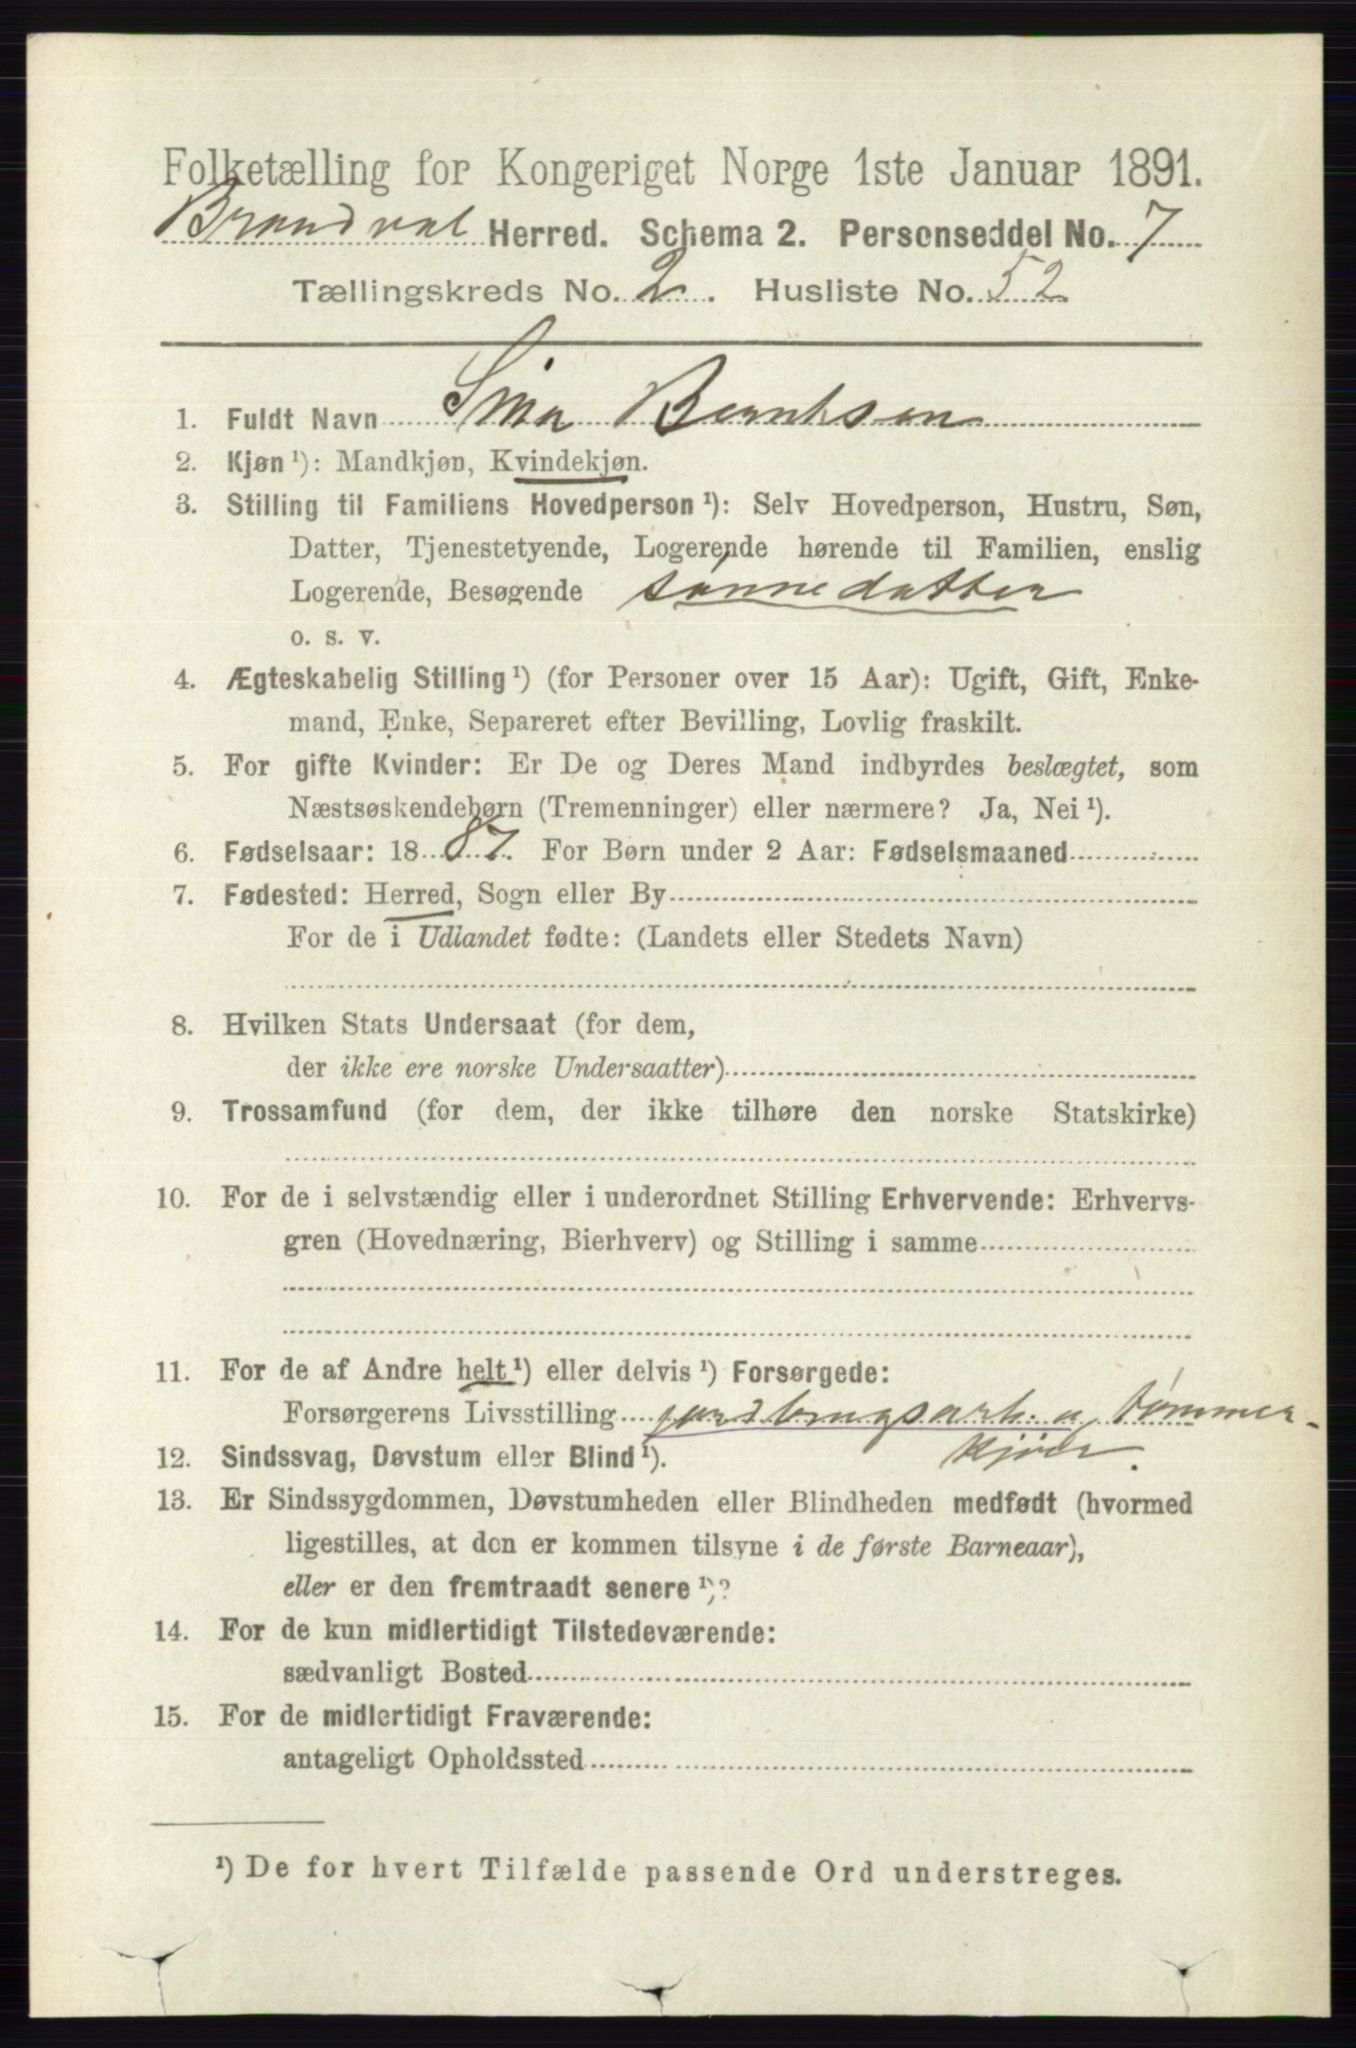 Folketælling for Kongeriget Norge 1ste Januar 1891.
Brandval Herred. Schema 2. Personseddel No. 7
Tællingskreds No. 2. Husliste No. 52
1. Fuldt Navn Sina Berntsen
2. Kjøn ¹): Mandkjøn, Kvindekjøn.
3. Stilling til Familiens Hovedperson ¹): Selv Hovedperson, Hustru, Søn,
Datter, Tjenestetyende, Logerende hørende til Familien, enslig
Logerende, Besøgende sønnedatter
o. s. v.
4. Ægteskabelig Stilling ¹) (for Personer over 15 Aar): Ugift, Gift, Enke-
mand, Enke, Separeret efter Bevilling, Lovlig fraskilt.
5. For gifte Kvinder: Er De og Deres Mand indbyrdes beslægtet, som
Næstsøskendebørn (Tremenninger) eller nærmere? Ja, Nei ¹).
6. Fødselsaar: 1887. For Børn under 2 Aar: Fødselsmaaned
7. Fødested: Herred, Sogn eller By
For de i Udlandet fødte: (Landets eller Stedets Navn)
8. Hvilken Stats Undersaat (for dem,
der ikke ere norske Undersaatter)
9. Trossamfund (for dem, der ikke tilhøre den norske Statskirke)
10. For de i selvstændig eller i underordnet Stilling Erhvervende: Erhvervs-
gren (Hovednæring, Bierhverv) og Stilling i samme
11. For de af Andre helt ¹) eller delvis ¹) Forsørgede:
Forsørgerens Livsstilling jordbrugsarb. og tømmer-
kjører.
12. Sindssvag, Døvstum eller Blind ¹).
13. Er Sindssygdommen, Døvstumheden eller Blindheden medfødt (hvormed
ligestilles, at den er kommen tilsyne i de første Barneaar),
eller er den fremtraadt senere ¹)?
14. For de kun midlertidigt Tilstedeværende:
sædvanligt Bosted
15. For de midlertidigt Fraværende:
antageligt Opholdssted
¹) De for hvert Tilfælde passende Ord understreges.